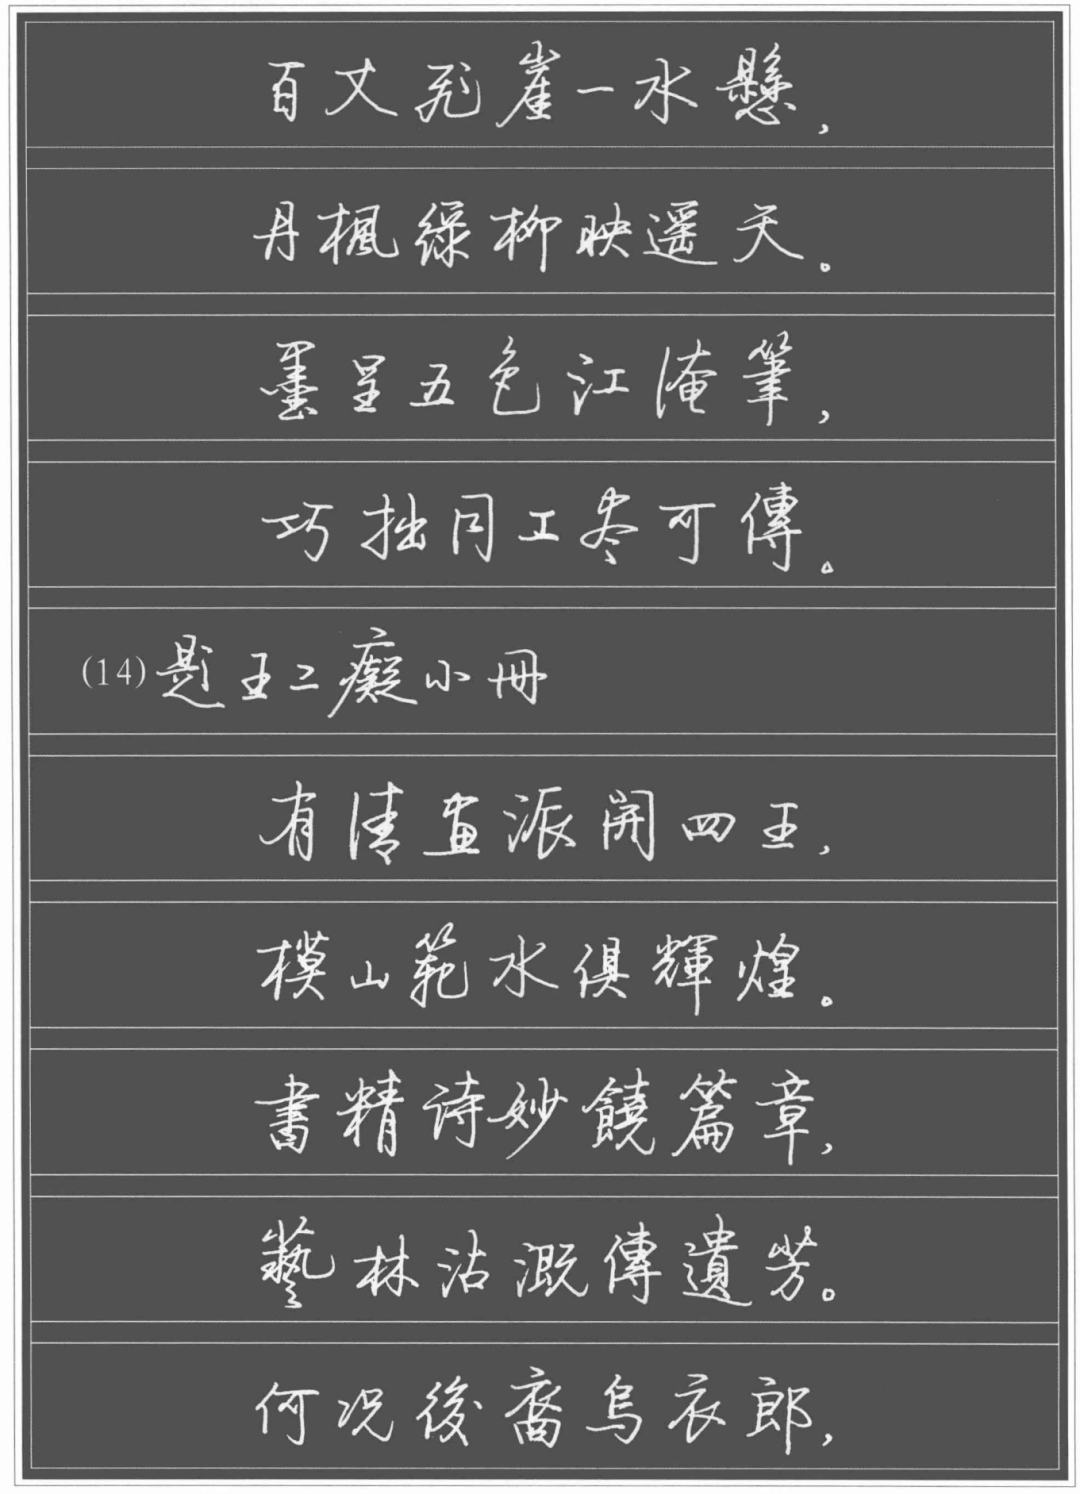 百丈飛崖一水懸，
丹楓綠柳映遥天。
墨呈五色江淹筆，
巧拙同工尽可傳。
(14)題王二癡小冊
有清畫派開四王，
模山範水俱輝煌。
書精诗妙饒篇章，
藝林沾溉傳遺芳。
何况後裔烏衣郎，